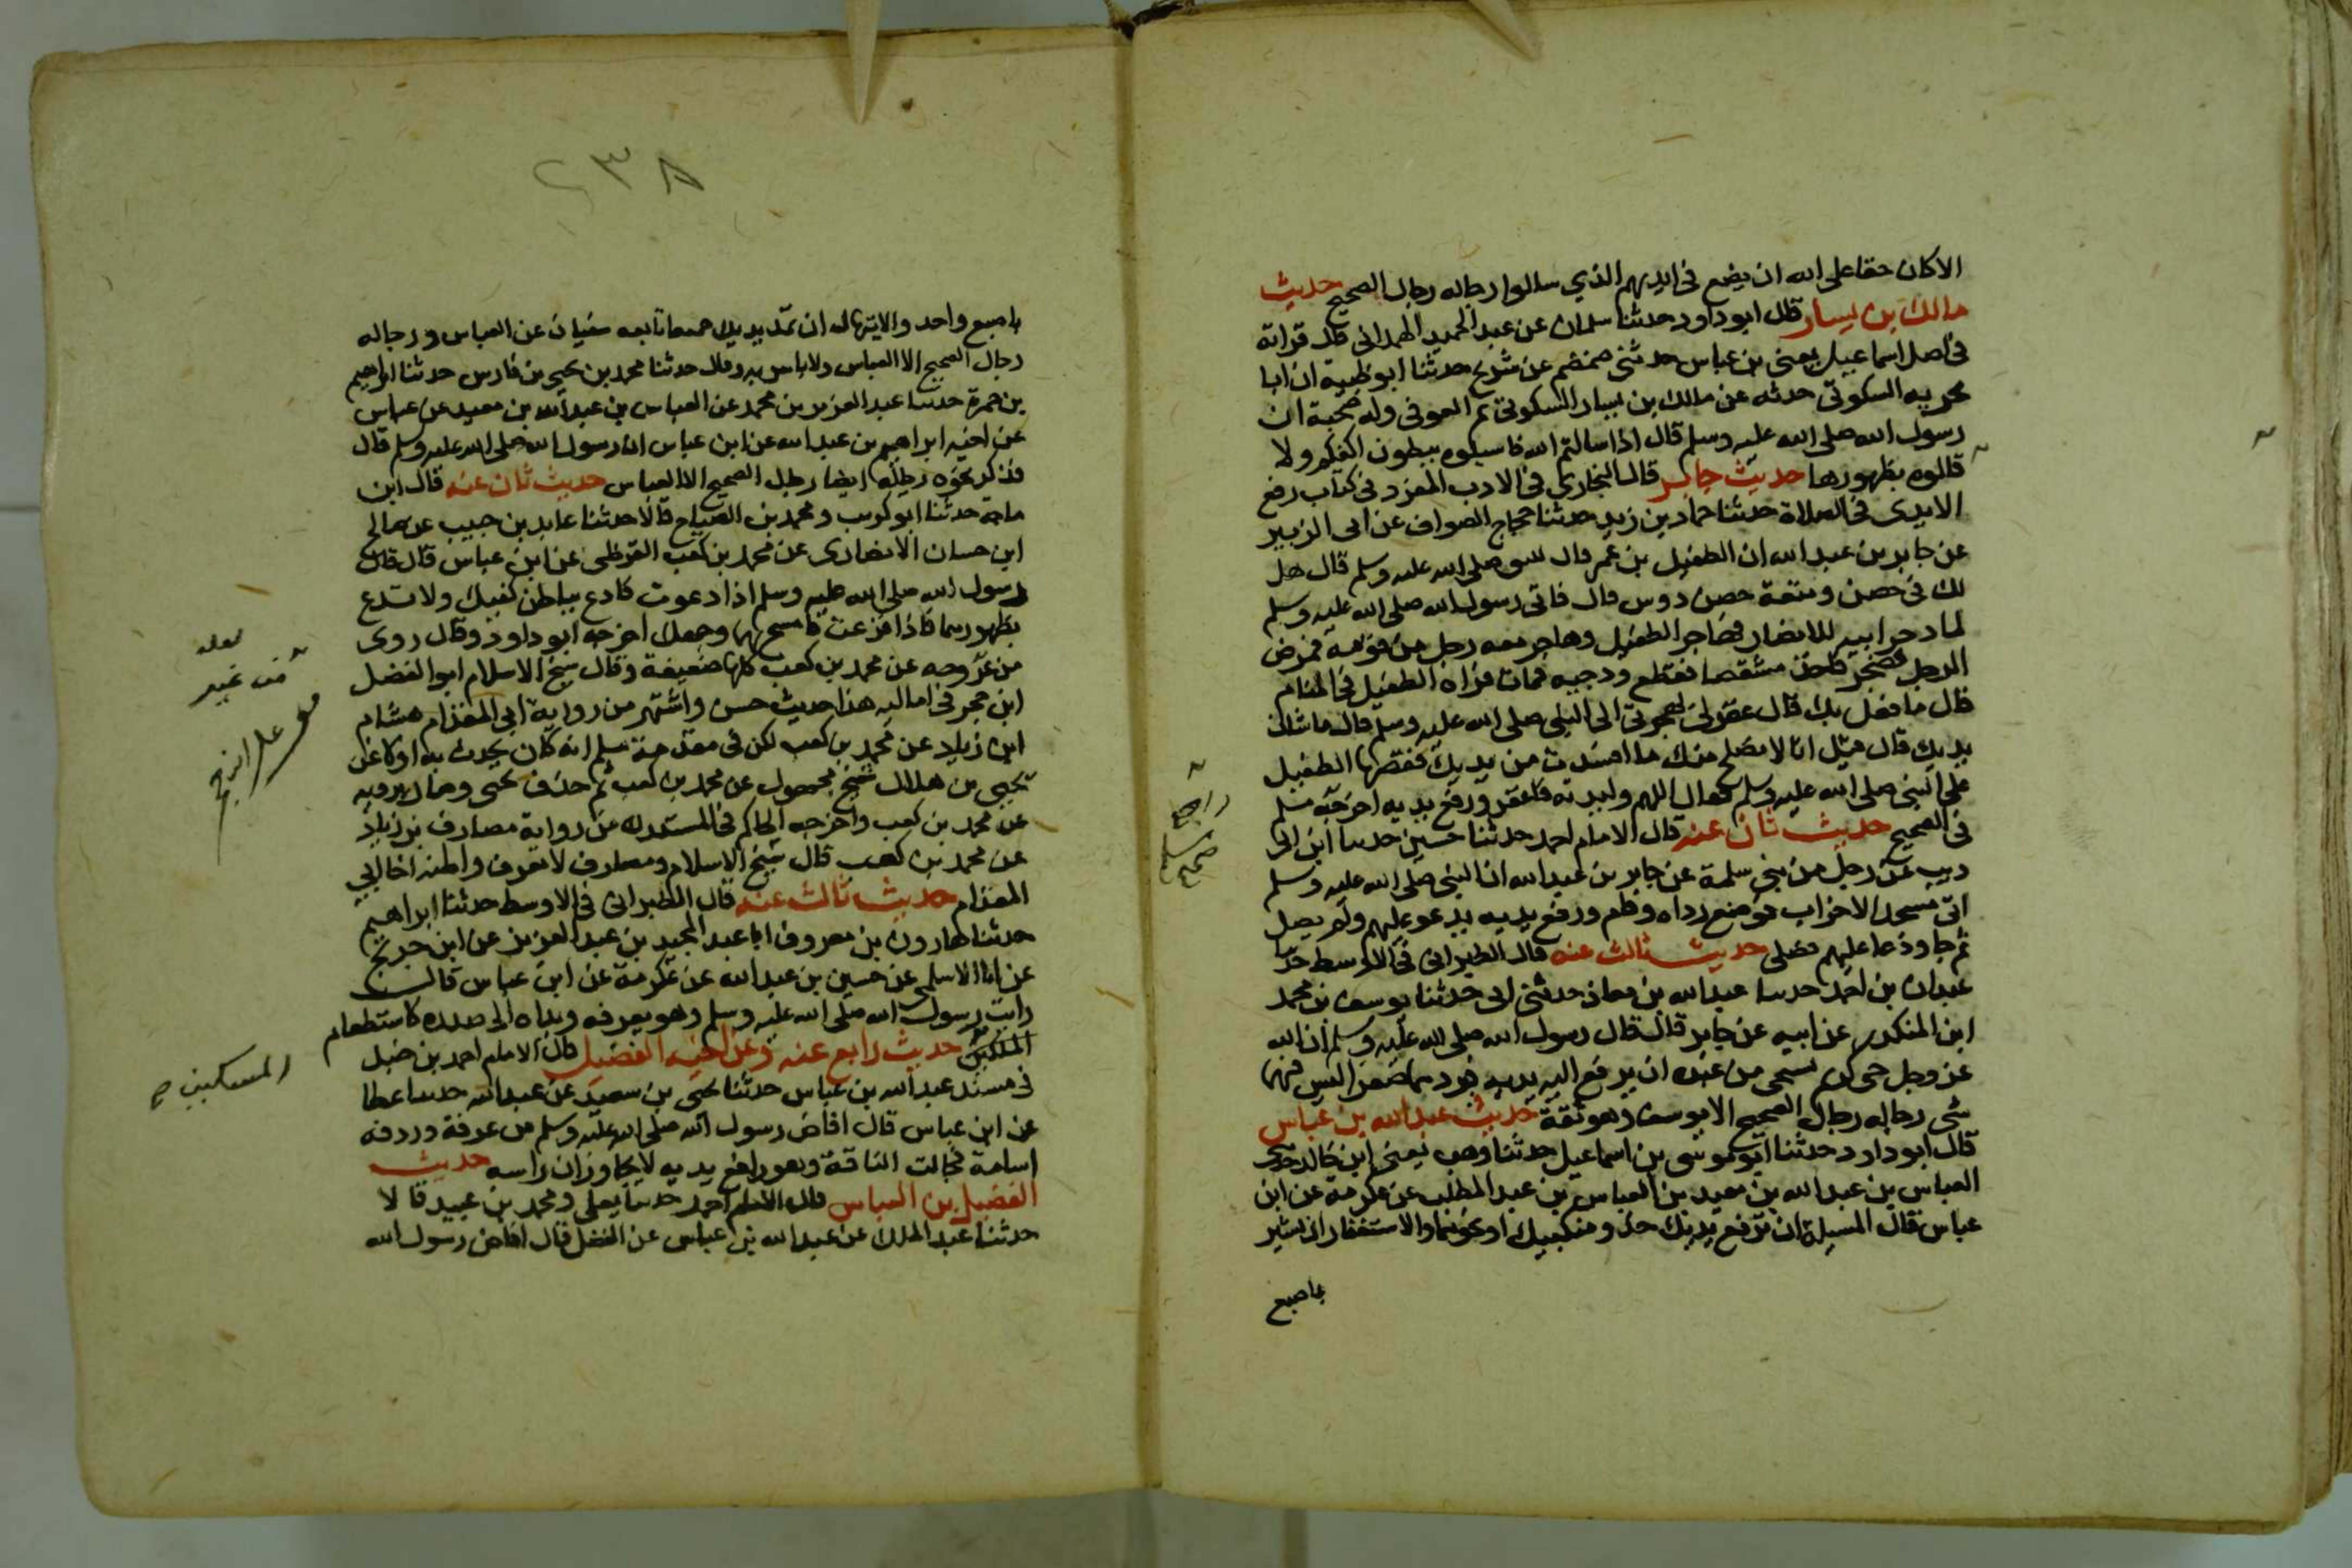 الا كان حقا على الله ان يضع في ايديهم الذي سالوا رجاله رجال الصحيح حديث
مالك بن يسار قال ابو داود حدثنا سلمان عن عبد الحميد الهمداني قال قراته
في اصل اسماعيل يعني بن عباس حدثني ضمضم عن شريح حدثنا ابو ظبية ان ابا
بحريه السكوتي حدثه عن مالك بن يسار السكوتي ثم العوفي وله صحبة ان
رسول الله صلى الله عليه وسلم قال اذا سالتم الله فاسيلوه ببطون اكفكم ولا
تسالوه بظهورها حديث جابر قال البخاري في الادب المفرد في كتاب رفع
الايدى في الصلاة حدثنا حماد بن زيد حدثنا حجاج الصواف عن ابى الزبير
عن جابر بن عبد الله ان الطفيل بن عمر قال للنبي صلى الله عليه وسلم قال هل
لك في حصن ومنعة حصن دوس قال فاتى رسول الله صلى الله عليه وسلم
لما دخر ابيه للانصار فهاجر الطفيل وهاجر معه رجل من قومه فمرض
الرجل فضجر فاخذ مشقصا فقطع ودجيه فمات فراه الطفيل في المنام
قال ما فعل بك قال غفر لي بهجرتي الى النبي صلى الله عليه وسلم قال ما شان
يديك قال قيل انا لا نصلح منك ما افسدت من يديك فقصها الطفيل
على النبي صلى الله عليه وسلم فقال اللهم وليديه فاغفر ورفع يديه اخرجه مسلم
في الصحيح حديث ثان عنه قال الامام احمد حدثنا حسين حدسا ابن ابى
ديب عن رجل من بني سلمة عن جابر بن عبد الله ان النبي صلى الله عليه وسلم
اتى مسجد الاحزاب فوضع رداه وقام ورفع يديه يدعو عليهم ولم يصل
ثم جا ودعا عليهم وصلى حديث ثالث عنه قال الطبراني في الاوسط حدثنا
عبدان بن احمد حدسا عبد الله بن معاذ حدثني ابى حدثنا يوسف بن محمد
ابن المنكدر عن ابيه عن جابر قال قال رسول الله صلى الله عليه وسلم ان الله
عز وجل حي كريم يستحى من عبده ان يرفع اليه يديه فيردهما صفرا ليس فيهما
شى رجاله رجال الصحيح الا يوسف وهو ثقة حديث عبد الله بن عباس
قال ابو داود حدثنا ابو موسى بن اسماعيل حدثنا وهب يعنى ابن خالد حدثنى
العباس بن عبد الله بن معبد بن العباس بن عبد المطلب عن عكرمة عن ابن
عباس قال المسيلة ان ترفع يديك حذو منكبيك او نحوهما والاستغفار ان تشير
باصبع
صحيح مسلم
٢٣٨
باصبع واحد والابتهال ان تمد يديك جميعا تابعه سفيان عن العباس ورجاله
رجال الصحيح الا العباس ولا باس به وقال حدثنا محمد بن يحيى بن فارس حدثنا ابراهيم
بن حمزة حدسا عبد العزيز بن محمد عن العباس بن عبد الله بن معبد عن عباس
عن اخيه ابراهيم بن عبد الله عن ابن عباس ان رسول الله صلى الله عليه وسلم قال
فذكر نحوه رجاله ايضا رجال الصحيح الا العباس حديث ثان عنه قال ابن
ماجة حدثنا ابو كريب ومحمد بن الصباح قالا حدثنا عايد بن حبيب عن صالح
ابن حسان الانصارى عن محمد بن كعب القرظى عن ابن عباس قال قال
رسول الله صلى الله عليه وسلم اذا دعوت فادع بباطن كفيك ولا تدع
بظهورهما فاذا فرغت فامسح بهما وجهك اخرجه ابو داود وقال روى
من غير وجه عن محمد بن كعب كلها ضعيفة وقال شيخ الاسلام ابو الفضل
ابن حجر في اماليه هذا حديث حسن واشتهر من رواية ابى المقدام هشام
ابن زياد عن محمد بن كعب لكن في مقدمة مسلم انه كان يحدث به اولا عن
يحيى عن هلال شيخ مجهول عن محمد بن كعب ثم حذف يحيى وصار يرويه
عن محمد بن كعب واخرجه الحاكم في المستدرك من رواية مصادف بن زياد
عن محمد بن كعب قال شيخ الاسلام ومصادف لا نعرف واظنه اخا لابى
المقدام حديث ثالث عنه قال الطبرانى فى الاوسط حدثنا ابراهيم
حدثنا هارون بن معروف ابا عبد المجيد بن عبد العزيز عن ابن جريج
عن انا الاسلمى عن حسين بن عبد الله عن عكرمة عن ابن عباس قال
رايت رسول الله صلى الله عليه وسلم وهو بعرفه ويداه الى صدره كاستطعام
المسكين حديث رابع عنه وعن اخيه الفضيل قال الامام احمد بن حنبل
في مسند عبد الله بن عباس حدثنا يحيى بن سعيد عن عبد الله حدسا عطا
عن ابن عباس قال افاض رسول الله صلى الله عليه وسلم من عرفة وردفه
اسامة فجالت الناقة وهو رافع يديه لا يجاوزان راسه حديث
الفضيل بن العباس قال الامام احمد حدسا يعلى ومحمد بن عبيد قالا
حدثنا عبد الملك عن عبد الله بن عباس عن الفضل قال افاض رسول الله
لعله
من غير
المسكين